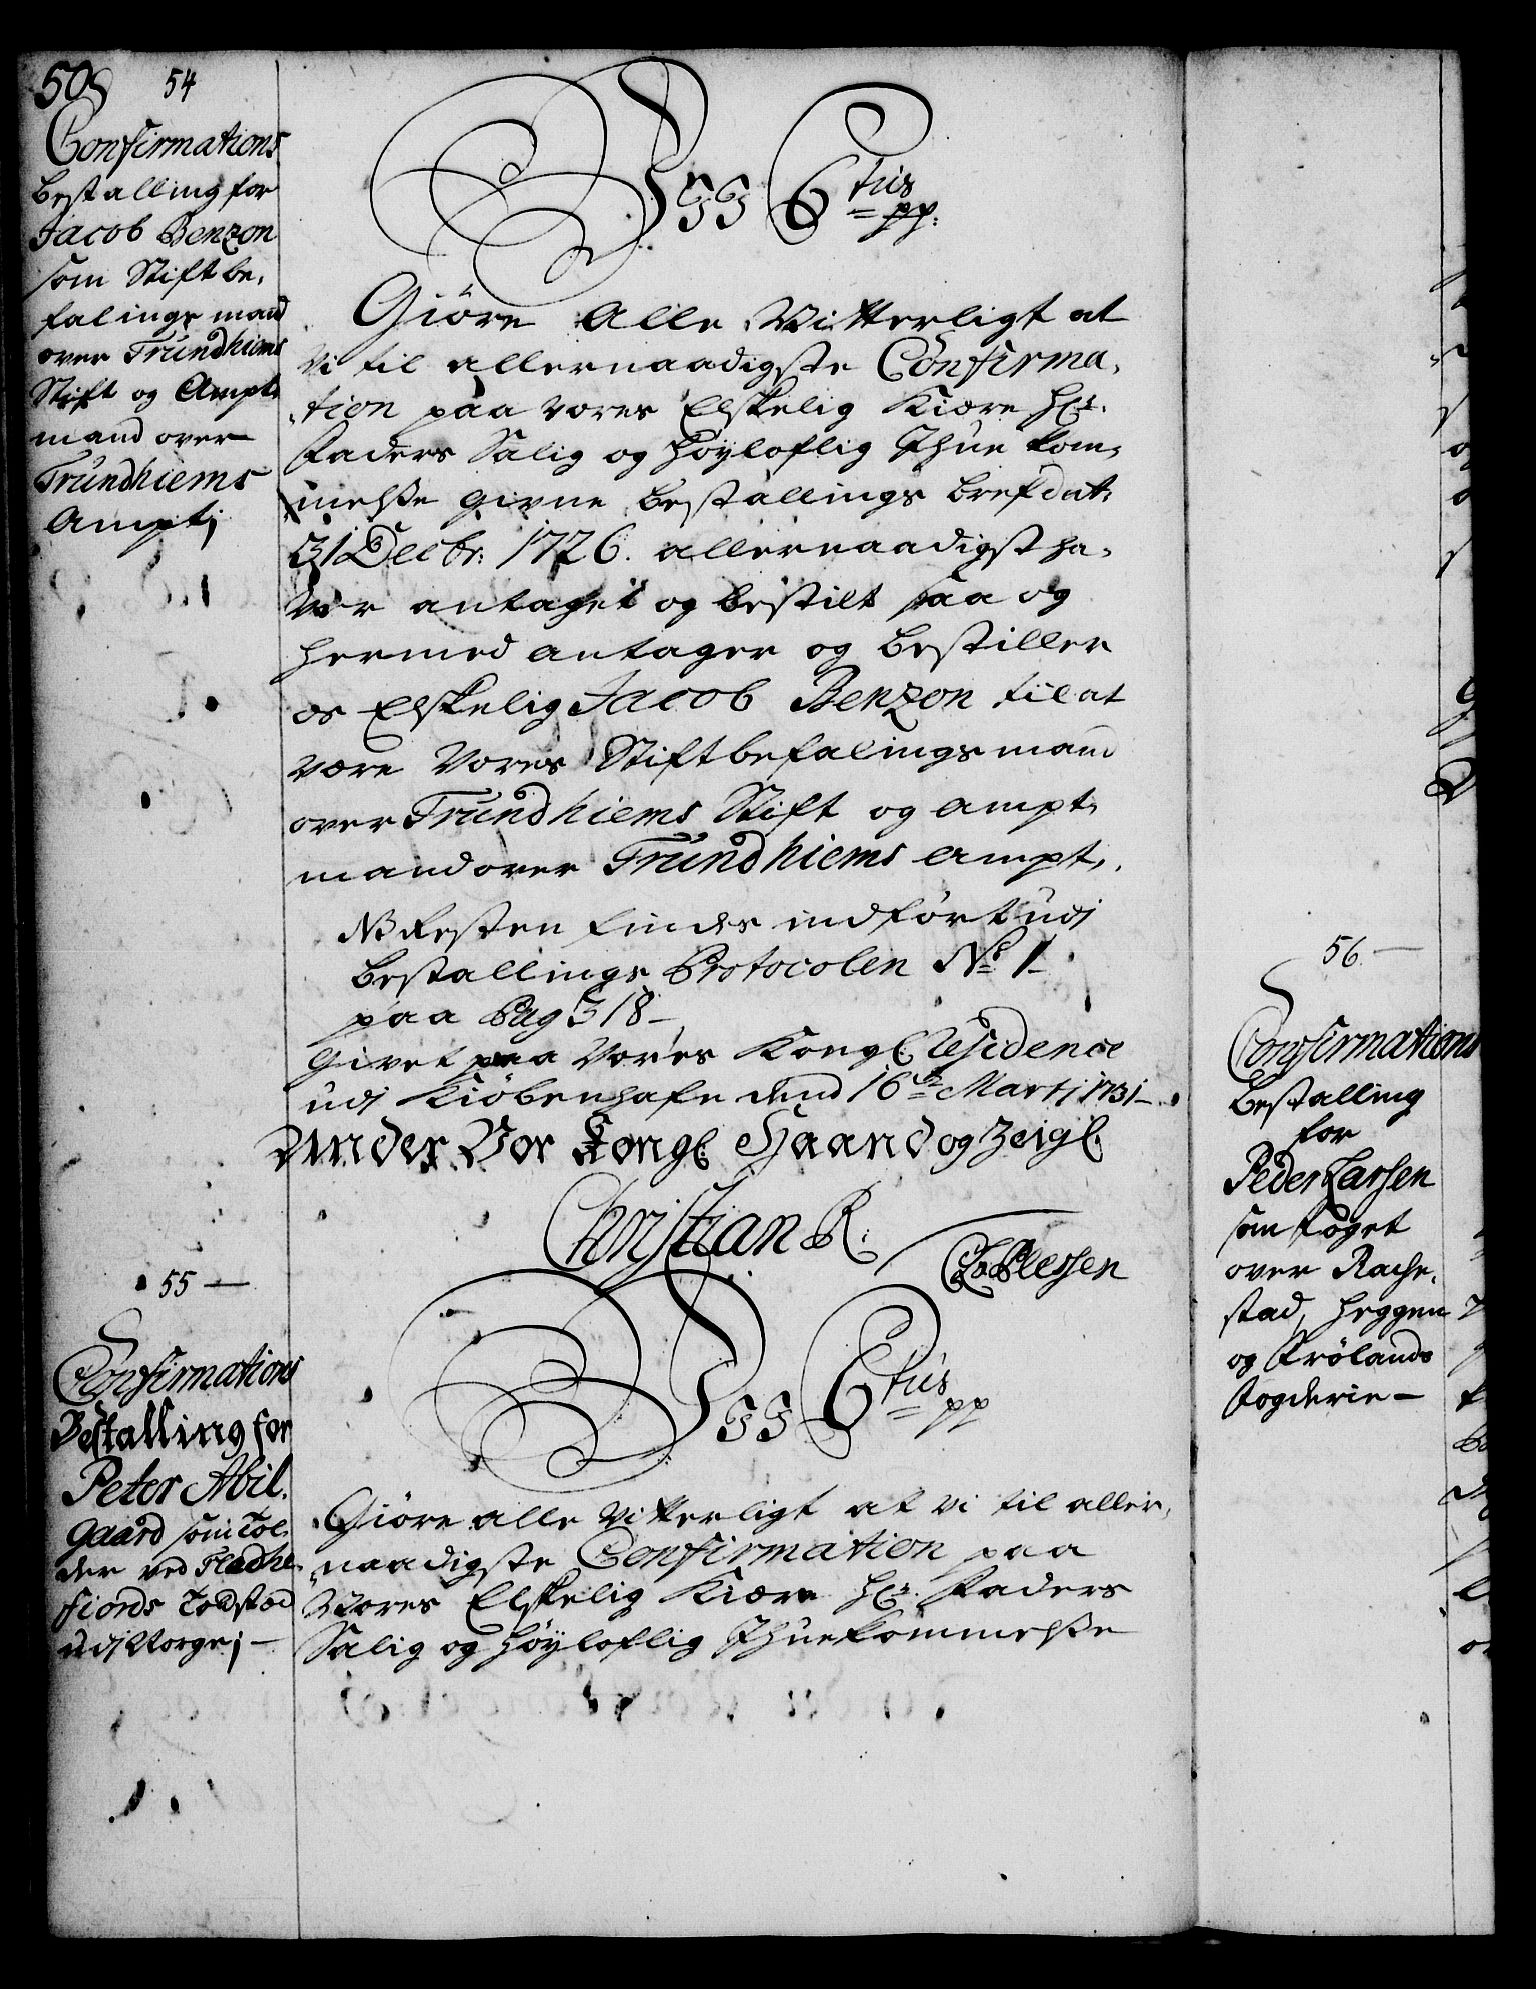 50
54
Confirmations
Bestalling for
Jacob Benzon
som Stiftbe,
falings mand
over Trundhiems
Stift og Ampt,
mand over
Trundhiems
Ampt;
Vii C6tus pp:
Giöre Alle Vitterligt at
Vi til allernaadigste Confirma,
tion paa Vores Elskelig Kiære Hr.
Faders Salig og Höyloflig Ihue kom,
melsse givne Bestallings bref dat:
31 Decbr: 1726. allernaadigst ha,
ver antaget og bestilt saa og
hermed antager og bestiller
os Elskelig Jacob Benzon til at
være Vores Stiftbefalings mand
over Trundhiems Stift og ampt,
mand over Trundhiems Ampt,.
NB Resten findes indfört udj
Bestallings Protocolen No 1
paa Pag 318 -
Givet paa Vores Kongl. Residence
udj Kiöbenhafn dend 16de Martj 1731 -
Under Vor Kongl. Haand og Zeigl.
Christian R.
Plessen
55 -
Confirmations
Bestalling for
Peter Abil,
Gaard som Tol,
der ved Fledke,
fiords Toldsted
udj Norge; -
Vii C6tus pp
Giöre alle Vitterligt at Vi til aller,
naadigste Confirmation paa
Vores Elskelig Kiære Hr. Faders
Salig og Höyloflig Ihuekommelsse
56 -
Confirmations
Bestalling
for
Peder Larsen
som Foget
over Rache,
stad, Heggen
og Frölands
Fogderie -